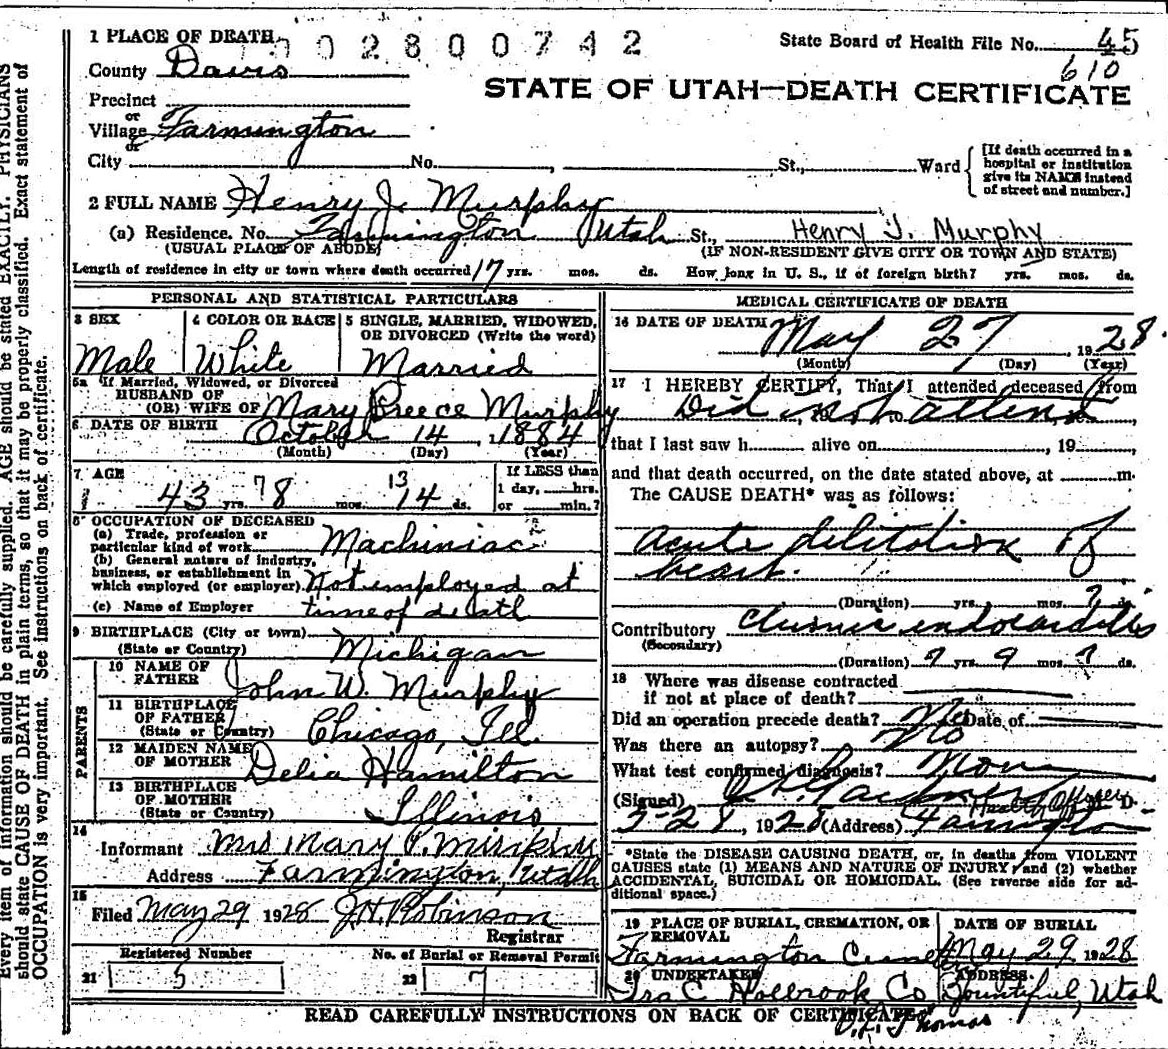 1 PLACE OF DEATH
002800742
State Board of Health File No. 45
610
County Davis
STATE OF UTAH—DEATH CERTIFICATE
Precinct
or
Village Farmington
or
City No. , St., Ward
[If death occurred in a
hospital or institution
give its NAME instead
of street and number.]
2 FULL NAME Henry J. Murphy
(a) Residence. No. Farmington Utah St., Henry J. Murphy
(USUAL PLACE OF ABODE) (IF NON-RESIDENT GIVE CITY OR TOWN AND STATE)
Length of residence in city or town where death occurred 17 yrs. mos. ds. How long in U. S., if of foreign birth? yrs. mos. ds.
PERSONAL AND STATISTICAL PARTICULARS
3 SEX
Male
4 COLOR OR RACE
White
5 SINGLE, MARRIED, WIDOWED,
OR DIVORCED (Write the word)
Married
5a If Married, Widowed, or Divorced
HUSBAND OF
(OR) WIFE OF Mary Preece Murphy
6 DATE OF BIRTH October 14, 1884
(Month) (Day) (Year)
7 AGE
43 yrs. 7 8 mos. 13 14 ds.
If LESS than
1 day, hrs.
or min.?
8 OCCUPATION OF DECEASED
(a) Trade, profession or
particular kind of work Machinist
(b) General nature of industry,
business, or establishment in
which employed (or employer). Not employed at
(c) Name of Employer time of death
9 BIRTHPLACE (City or town)
(State or Country) Michigan
PARENTS
10 NAME OF
FATHER John W. Murphy
11 BIRTHPLACE
OF FATHER
(State or Country) Chicago, Ill.
12 MAIDEN NAME
OF MOTHER Delia Hamilton
13 BIRTHPLACE
OF MOTHER
(State or Country) Illinois
14
Informant Mrs Mary P. Murphy
Address Farmington, Utah
15
Filed May 29 1928 J.H. Robinson
Registrar
Registered Number
21 5
No. of Burial or Removal Permit
22 7
MEDICAL CERTIFICATE OF DEATH
16 DATE OF DEATH May 27 1928.
(Month) (Day) (Year)
17 I HEREBY CERTIFY, That I attended deceased from
Did not attend
that I last saw h alive on , 19
and that death occurred, on the date stated above, at m.
The CAUSE DEATH* was as follows:
Acute dilitation of
heart.
(Duration) yrs. mos. ? ds.
Contributory Chronic endocarditis
(Secondary)
(Duration) ? yrs. ? mos. ? ds.
18 Where was disease contracted
if not at place of death?
Did an operation precede death? No Date of
Was there an autopsy? No
What test confirmed diagnosis? None
(Signed) Health Officer M. D.
5-28, 1928 (Address) Farmington
*State the DISEASE CAUSING DEATH, or, in deaths from VIOLENT
CAUSES state (1) MEANS AND NATURE OF INJURY and (2) whether
ACCIDENTAL, SUICIDAL OR HOMICIDAL. (See reverse side for ad-
ditional space.)
19 PLACE OF BURIAL, CREMATION, OR
REMOVAL
Farmington
DATE OF BURIAL
May 29 1928
20 UNDERTAKER
Ira C. Holbrook Co
ADDRESS
Bountiful, Utah
READ CAREFULLY INSTRUCTIONS ON BACK OF CERTIFICATE.
Thomas
Every item of information should be carefully supplied. AGE should be stated EXACTLY. PHYSICIANS
should state CAUSE OF DEATH in plain terms, so that it may be properly classified. Exact statement of
OCCUPATION is very important. See instructions on back of certificate.